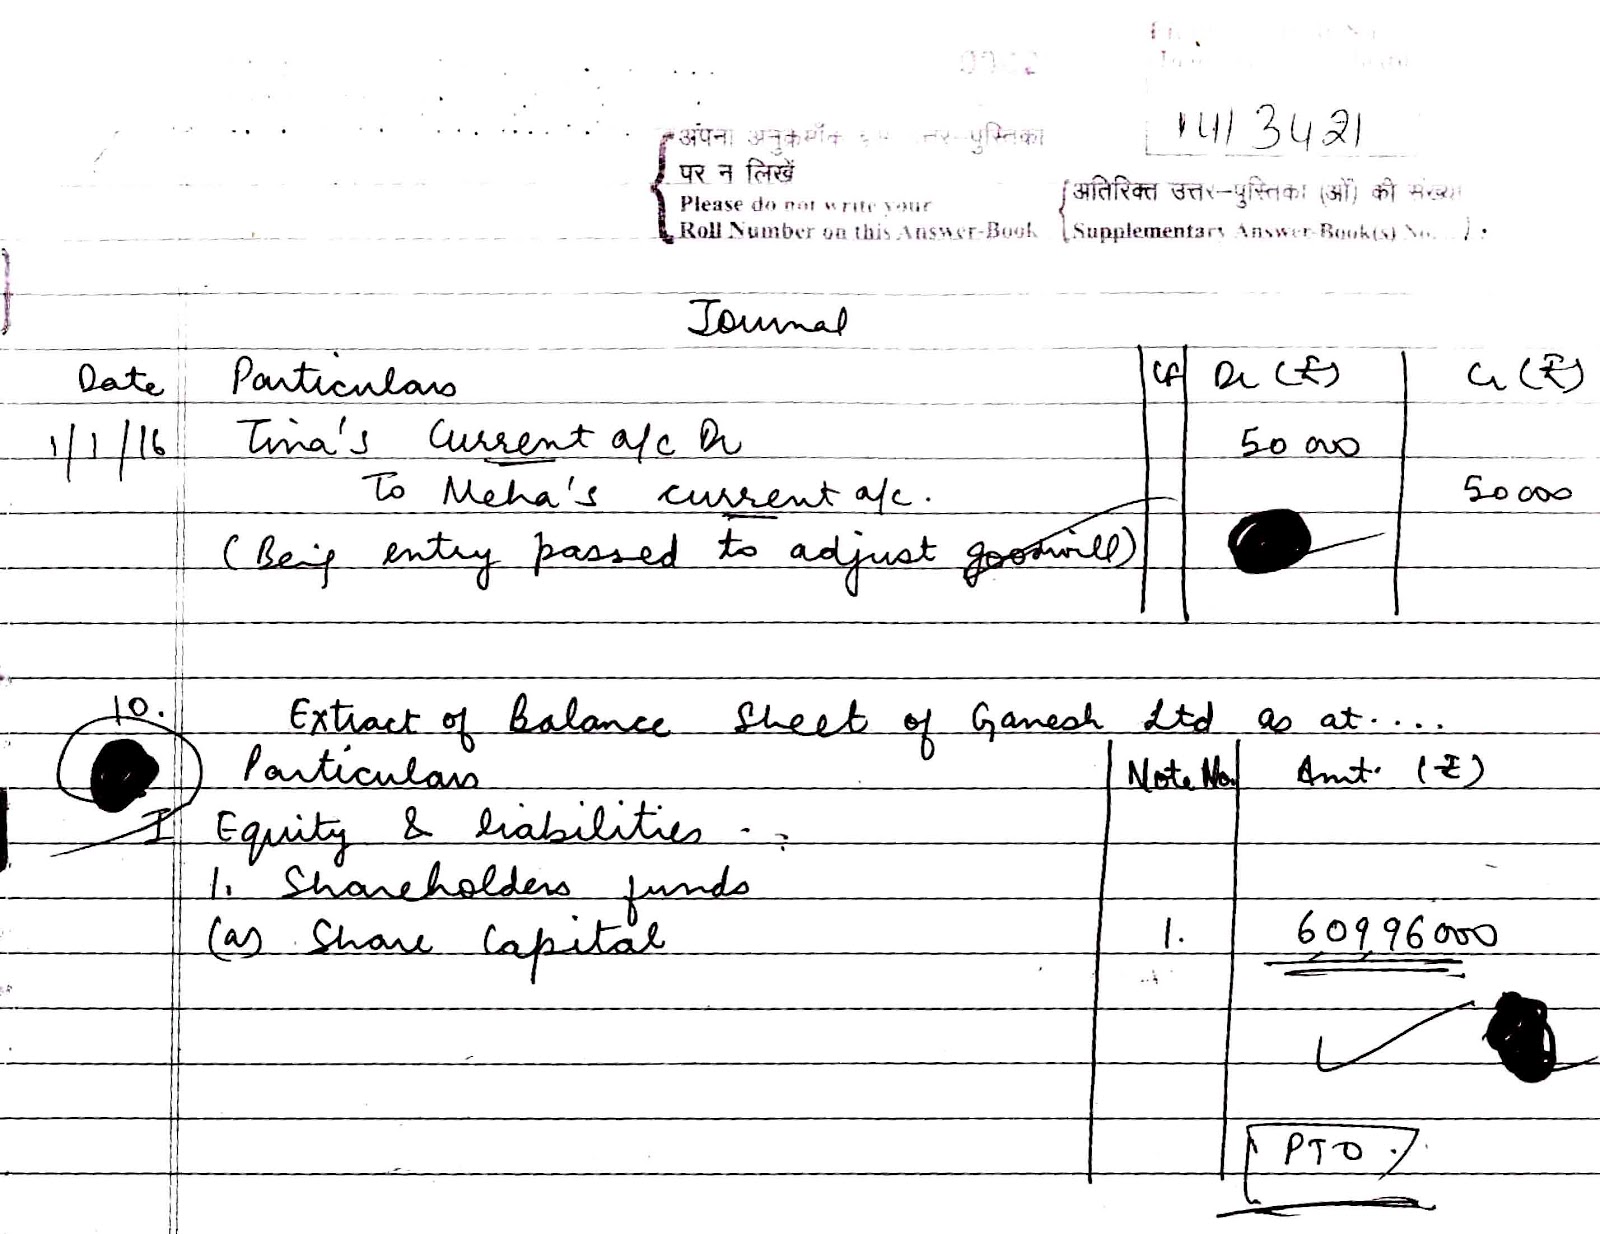 1413421
अपना अनुक्रमाँक इस उत्तर-पुस्तिका
पर न लिखें
Please do not write your
Roll Number on this Answer-Book
अतिरिक्त उत्तर-पुस्तिका (ओं) की संख्या
Supplementary Answer-Book(s) No.
Journal
Date Particulars LF Dr (₹) Cr (₹)
1/1/16 Tina's Current a/c Dr 50 000
To Meha's current a/c. 50 000
(Being entry passed to adjust goodwill)
10. Extract of Balance Sheet of Ganesh Ltd as at....
Particulars Note No. Amt. (₹)
I Equity & liabilities
1. Shareholders funds
(a) Share Capital 1. 60,996,000
PTO